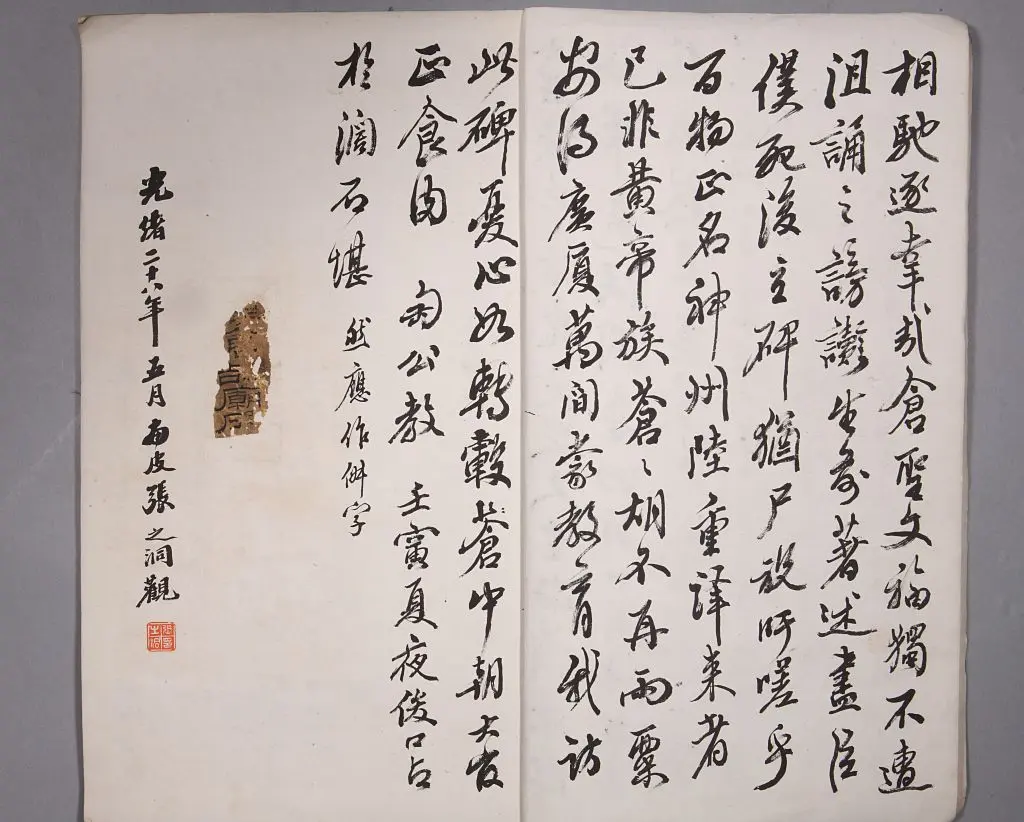 相馳逐幸哉倉聖文福獨不遭
沮誦之謗譏生前著述盡臣
僕死後立碑猶尸祝吁嗟乎
百物正名神州陸重譯来者
已非黃帝族蒼〻胡不再雨粟
安得廣厦萬間豪教育我訪
此碑憂心如轉轂蒼中朝大官
正食肉 匋公教 壬寅夏夜俊口占
於
石堪 然應作 字
光緒二十八年五月南皮張之洞觀